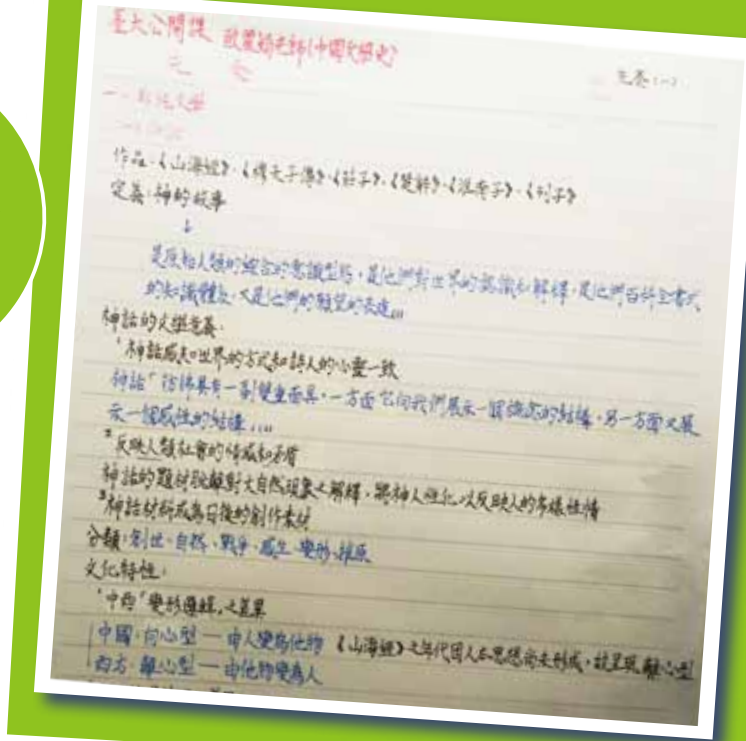 臺大公開課 歐麗娟老師(中國文學史)
先秦
先秦(一)
一、神話文學
作品:《山海經》、《穆天子傳》、《莊子》、《楚辭》、《淮南子》、《列子》
定義:神的故事
↓
是原始人類的綜合的意識型態,是他們對世界的認識和解釋,是他們百科全書式
的知識體系,又是他們的願望的表達...
神話的文學意義:
1 神話感知世界的方式和詩人的心靈一致
神話「彷彿具有一副雙重面具,一方面它向我們展示一個概念的結構,另一方面又展
示一個感性的結構....
2 反映人類社會的情感和矛盾
神話的題材脫離對大自然現象之解釋,將神人性化,以反映人的多樣性情
3 神話材料成為日後的創作素材
分類:創世、自然、戰爭、感生、變形、推原
文化特性:
1 中西「變形邏輯」之差異
中國:向心型 — 由人變為他物 《山海經》之年代因人本思想尚未形成,故呈現離心型
西方:離心型 — 由他物變為人